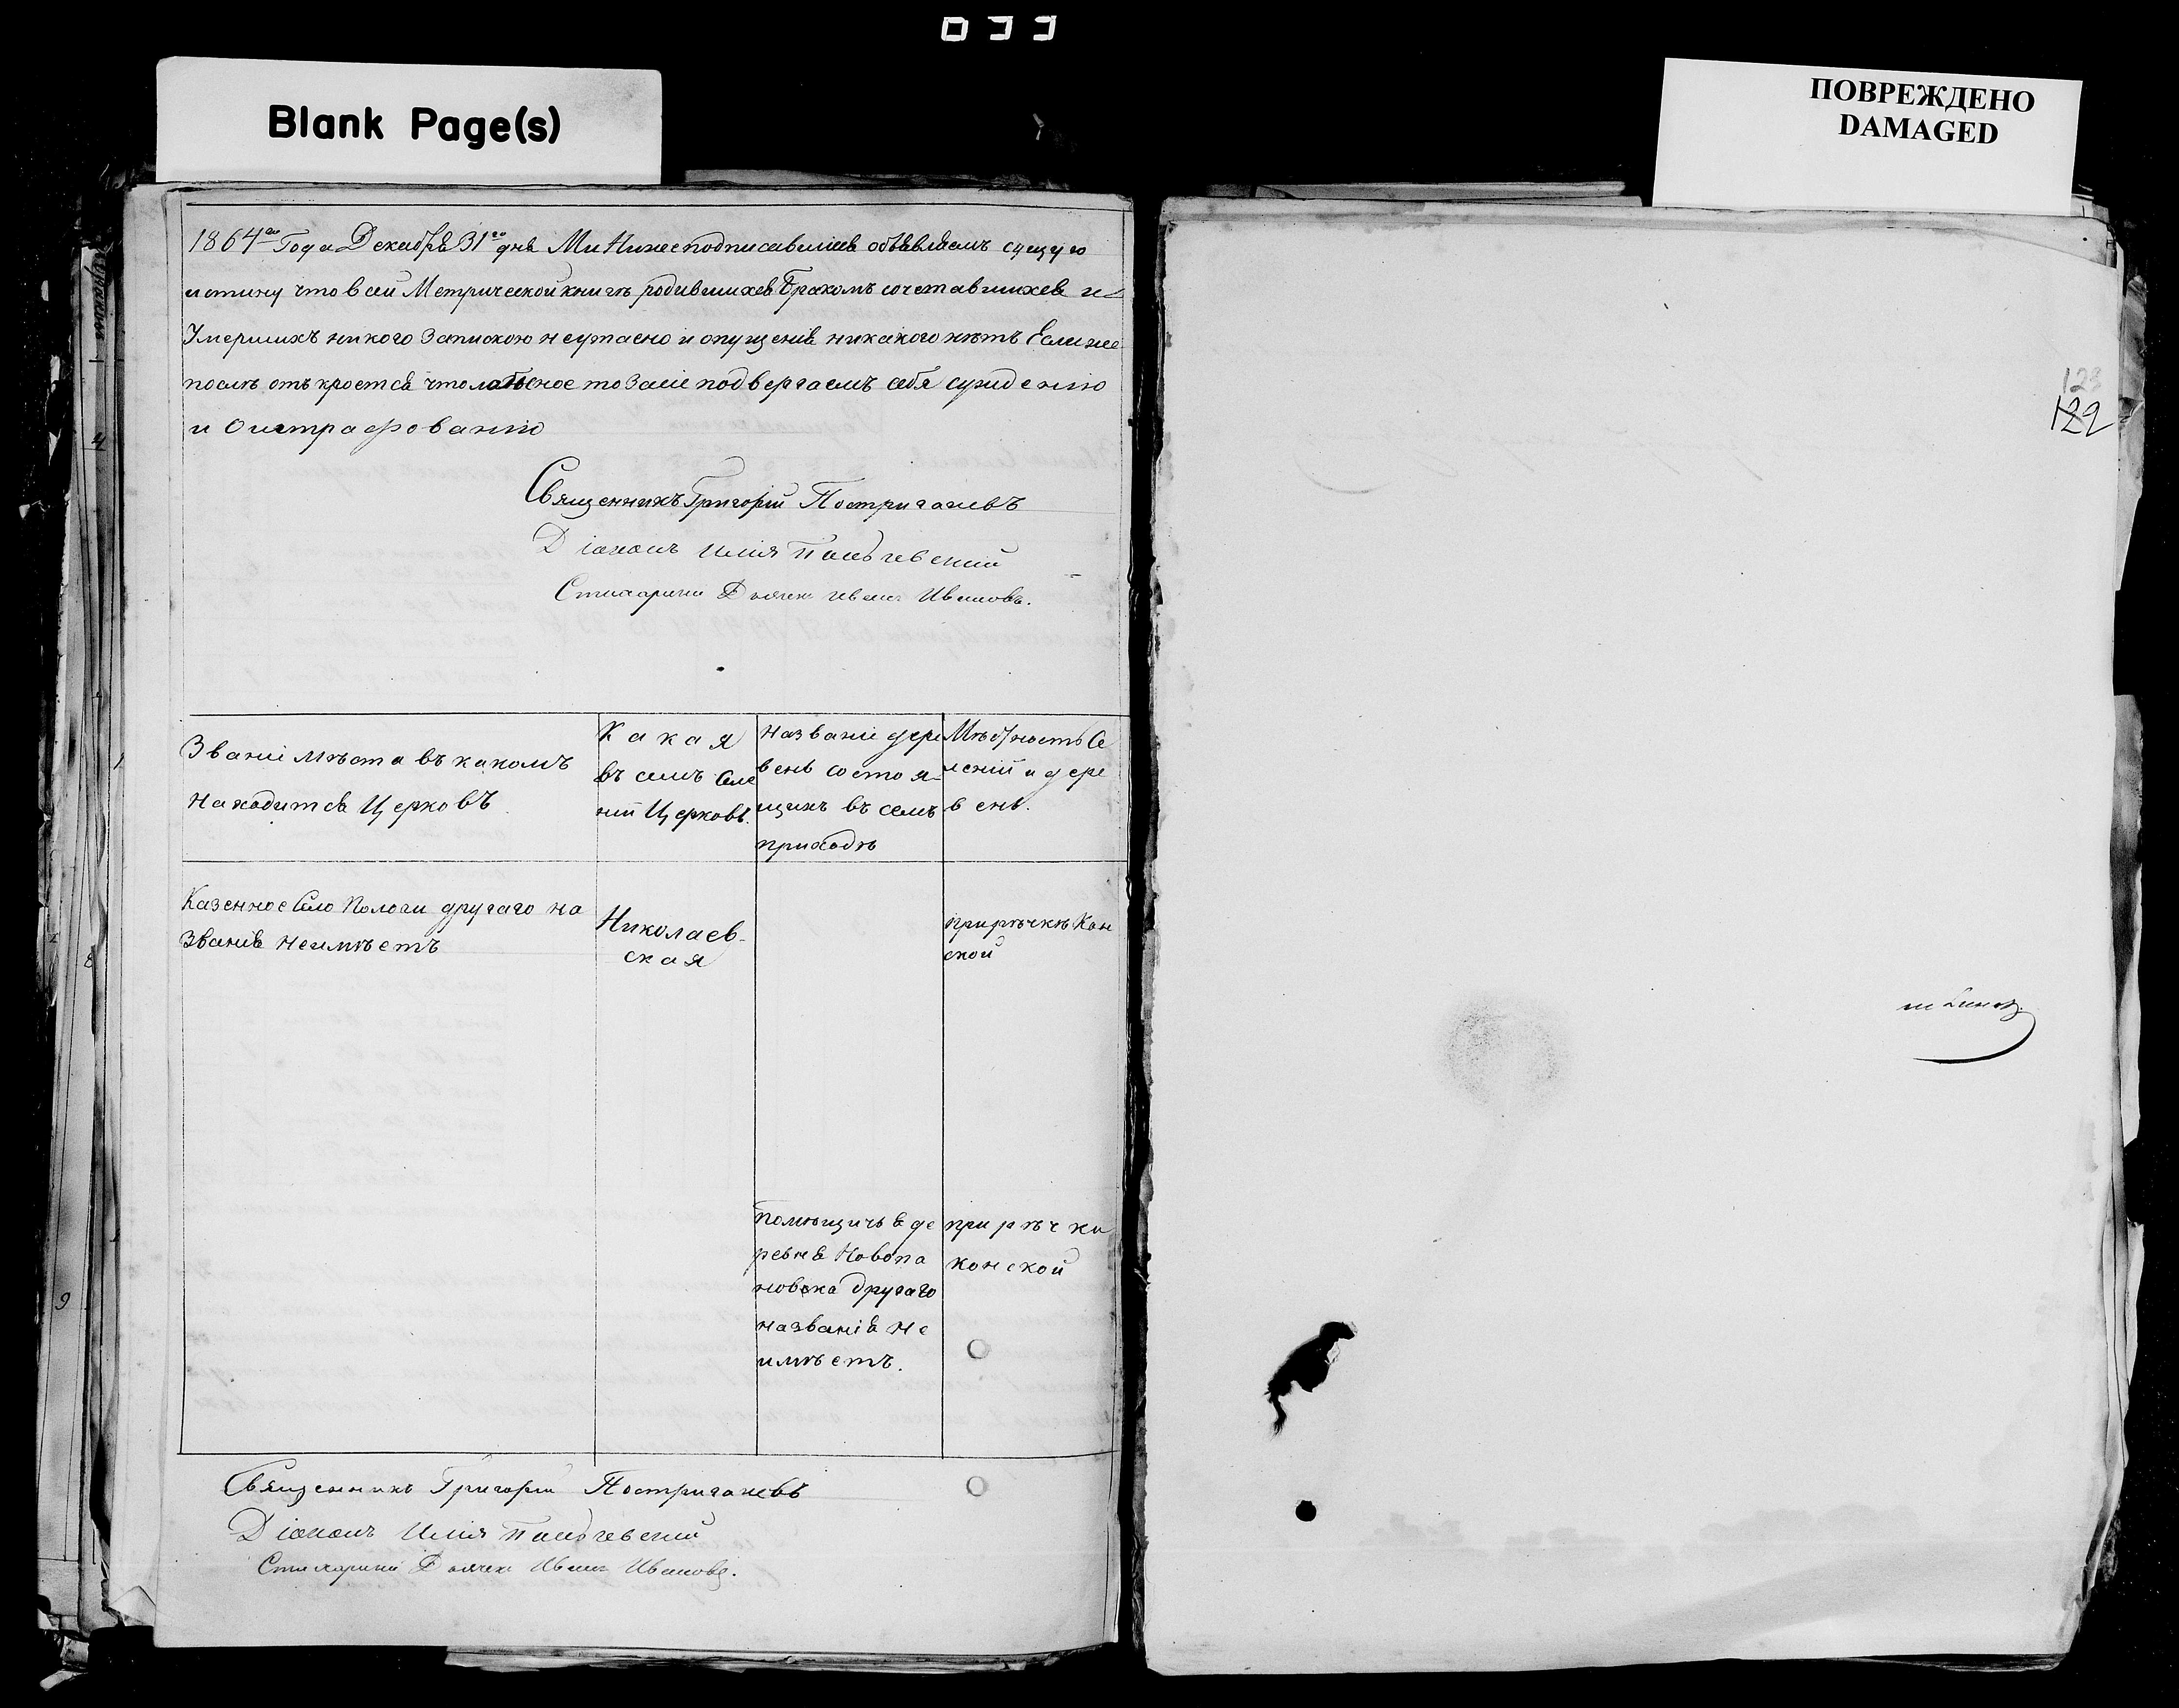 033
Blank Page(s)
ПОВРЕЖДЕНО
DAMAGED
1864го Года Декабря 31го дня Ми Нижеподписавшіеся объявляемъ сущую
истину что в сей Метрической книгѣ родившихся Бракомъ сочетавшихся и
Умершихъ никого Запискою неутаено и опущенія никакого нѣтъ Если же
послѣ откроется что ложное то Заніе подвергаемъ себя сужденію
и Оштрафованію
Священникъ Григорій Постригачевъ
Діаконъ Илія
Стихарный Дьячек Иванъ Ивановъ.
Званіи мѣста въ какомъ
находится Церковъ
Какая
въ семъ Селе
ніи Церковь.
Названіи дере
вень состоя-
щихъ въ семъ
приходѣ
Мѣстность Се
леній и дере
вень.
Казенное Село Пологи другаго на
званія неимѣетъ
Николаев-
ская
при рѣчкѣ Кон
ской
Помѣщичья де
ревня Новопа
новска другаго
названія не
имѣетъ.
при рѣчки
конской
Священникъ Григорій Постригачевъ
Діаконъ Илія
Стихарный Дьячек Иванъ Ивановъ.
123
122